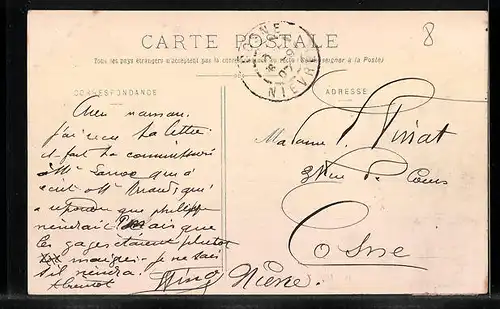 8
CARTE POSTALE
Tous les pays étrangers n'acceptent pas la correspondance au recto (Se renseigner à la Poste)
COSNE
NIEVRE
CORRESPONDANCE
ADRESSE
Chère maman.
j'ai reçu ta lettre
et fait la commission
à Mr
écrit à Mr qui
a répondu que philippe
viendrait mais que
les gages étaient plutot
maigres. je ne sais
s'il viendra.
A bientot
Madame P.
3 Rue P. Cours
Cosne
Nièvre.